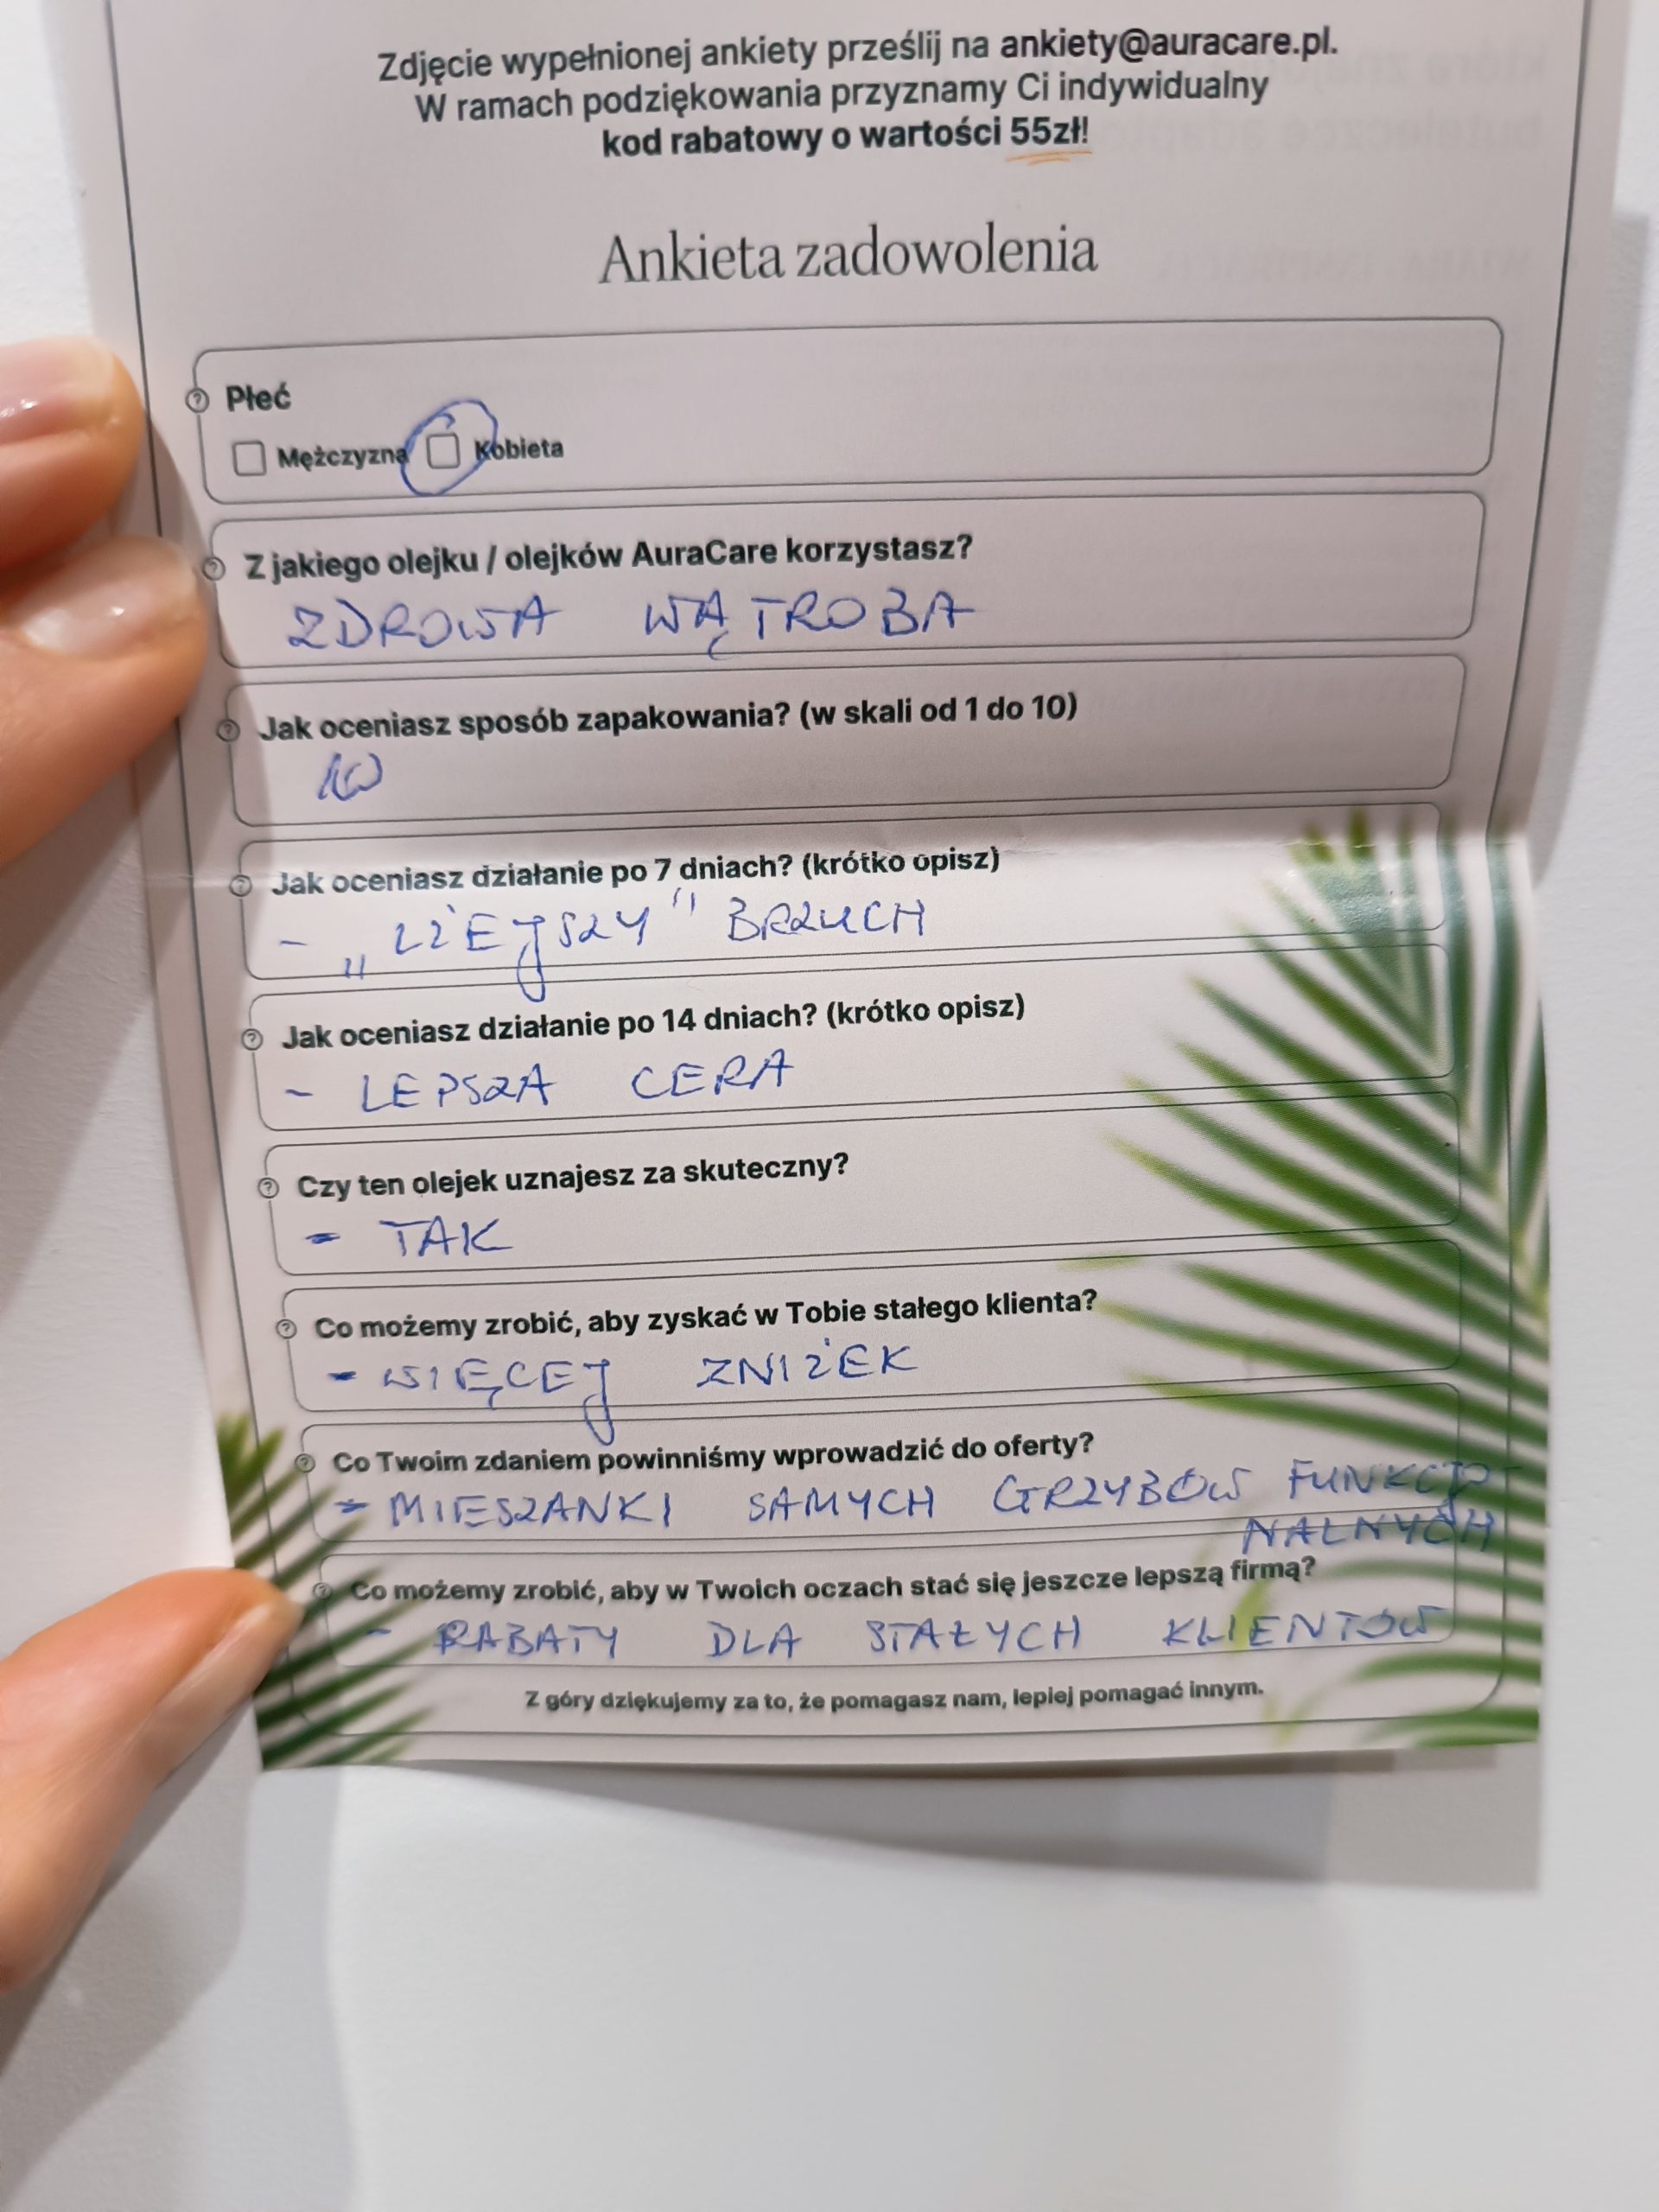 Zdjęcie wypełnionej ankiety prześlij na ankiety@auracare.pl.
W ramach podziękowania przyznamy Ci indywidualny
kod rabatowy o wartości 55zł!
Ankieta zadowolenia
Płeć
Mężczyzna Kobieta
Z jakiego olejku / olejków AuraCare korzystasz?
ZDROWA WĄTROBA
Jak oceniasz sposób zapakowania? (w skali od 1 do 10)
10
Jak oceniasz działanie po 7 dniach? (krótko opisz)
- „LŻEJSZY" BRZUCH
Jak oceniasz działanie po 14 dniach? (krótko opisz)
- LEPSZA CERA
Czy ten olejek uznajesz za skuteczny?
- TAK
Co możemy zrobić, aby zyskać w Tobie stałego klienta?
- WIĘCEJ ZNIŻEK
Co Twoim zdaniem powinniśmy wprowadzić do oferty?
- MIESZANKI SAMYCH GRZYBÓW FUNKCJO
NALNYCH
Co możemy zrobić, aby w Twoich oczach stać się jeszcze lepszą firmą?
- RABATY DLA STAŁYCH KLIENTÓW
Z góry dziękujemy za to, że pomagasz nam, lepiej pomagać innym.